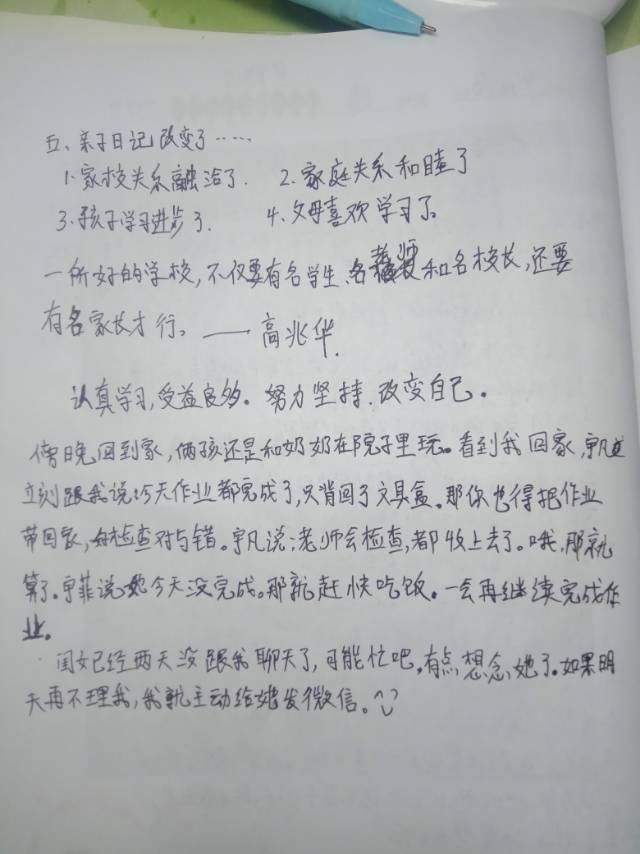 五、亲子日记改变了……
1.家校关系融洽了. 2.家庭关系和睦了
3.孩子学习进步了. 4.父母喜欢学习了。
一所好的学校,不仅要有名学生、名教师和名校长,还要
有名家长才行。——高兆华.
认真学习,受益良多。努力坚持.改变自己。
傍晚回到家,俩孩还是和奶奶在院子里玩。看到我回家,宇凡立
立刻跟我说今天作业都完成了,只背回了文具盒。那你也得把作业
带回家,好检查对与错。宇凡说:老师会检查,都收上去了。哦,那就
算了。宇菲说她今天没完成。那就赶快吃饭。一会再继续完成作
业。
闺女已经两天没跟我聊天了,可能忙吧。有点想念她了。如果明
天再不理我,我就主动给她发微信。